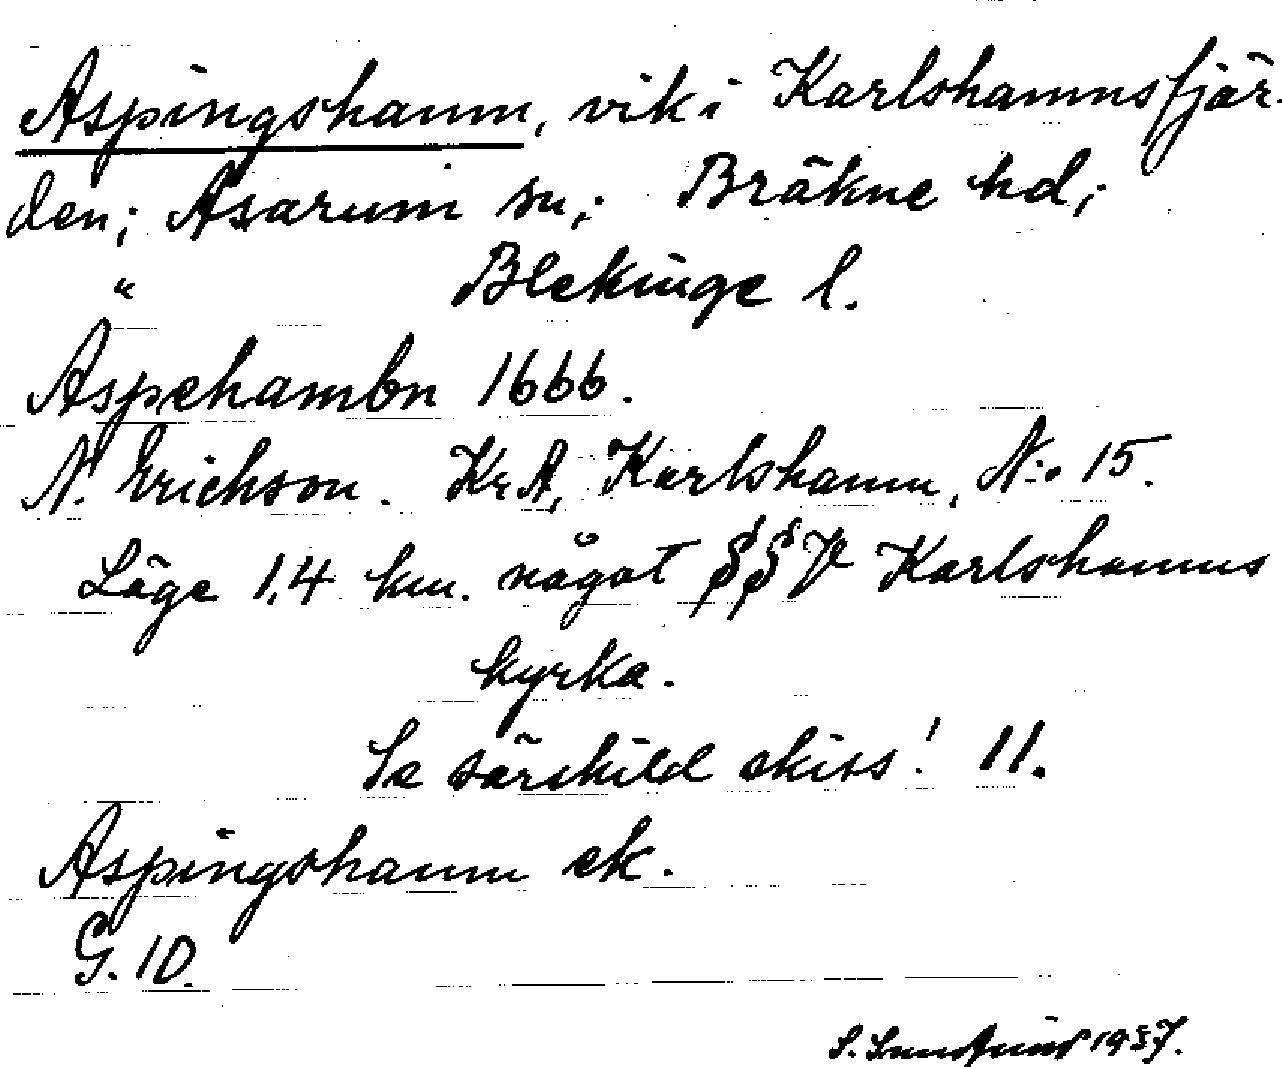 Aspingshamn, vik i Karlshamnsfjär-
den; Asarum sn; Bräkne hd;
" Blekinge l.
Aspehambn 1666.
N. Erichson. KrA, Karlshamn, N:o 15.
Läge 1,4 km. något §§V Karlshamns
kyrka.
Se särskild skiss! 11.
Aspingshamn ek.
G. 10.
S. 1937.